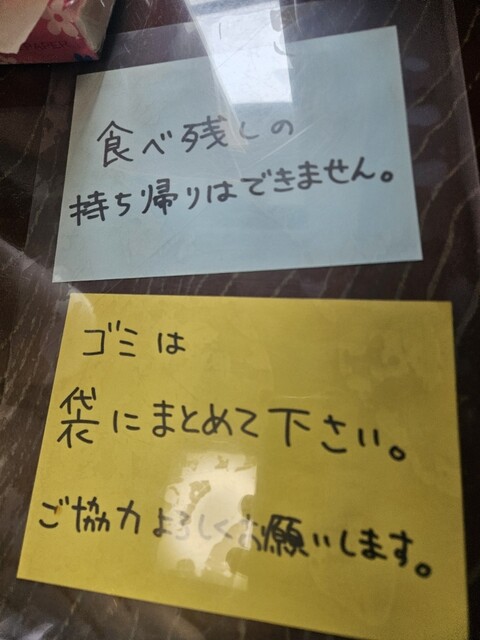 食べ残しの
持ち帰りはできません。
ゴミは
袋にまとめて下さい。
ご協力よろしくお願いします。